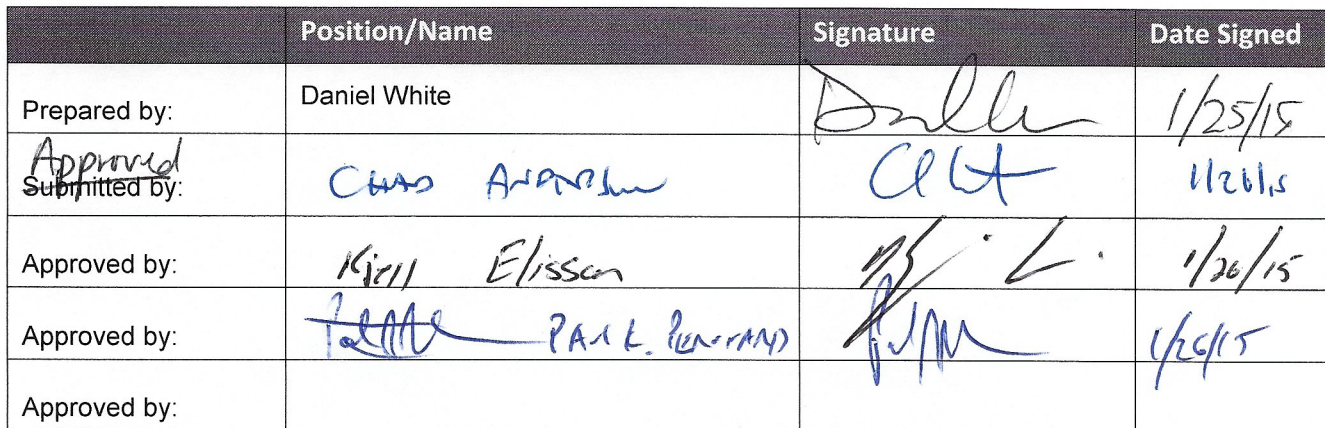 Position/Name Signature Date Signed
Prepared by: Daniel White 1/25/15
Approved
Submitted by: CHAD ANDERSON 1/26/15
Approved by: Kjell Elisson 1/26/15
Approved by: PAUL 1/26/15
Approved by: